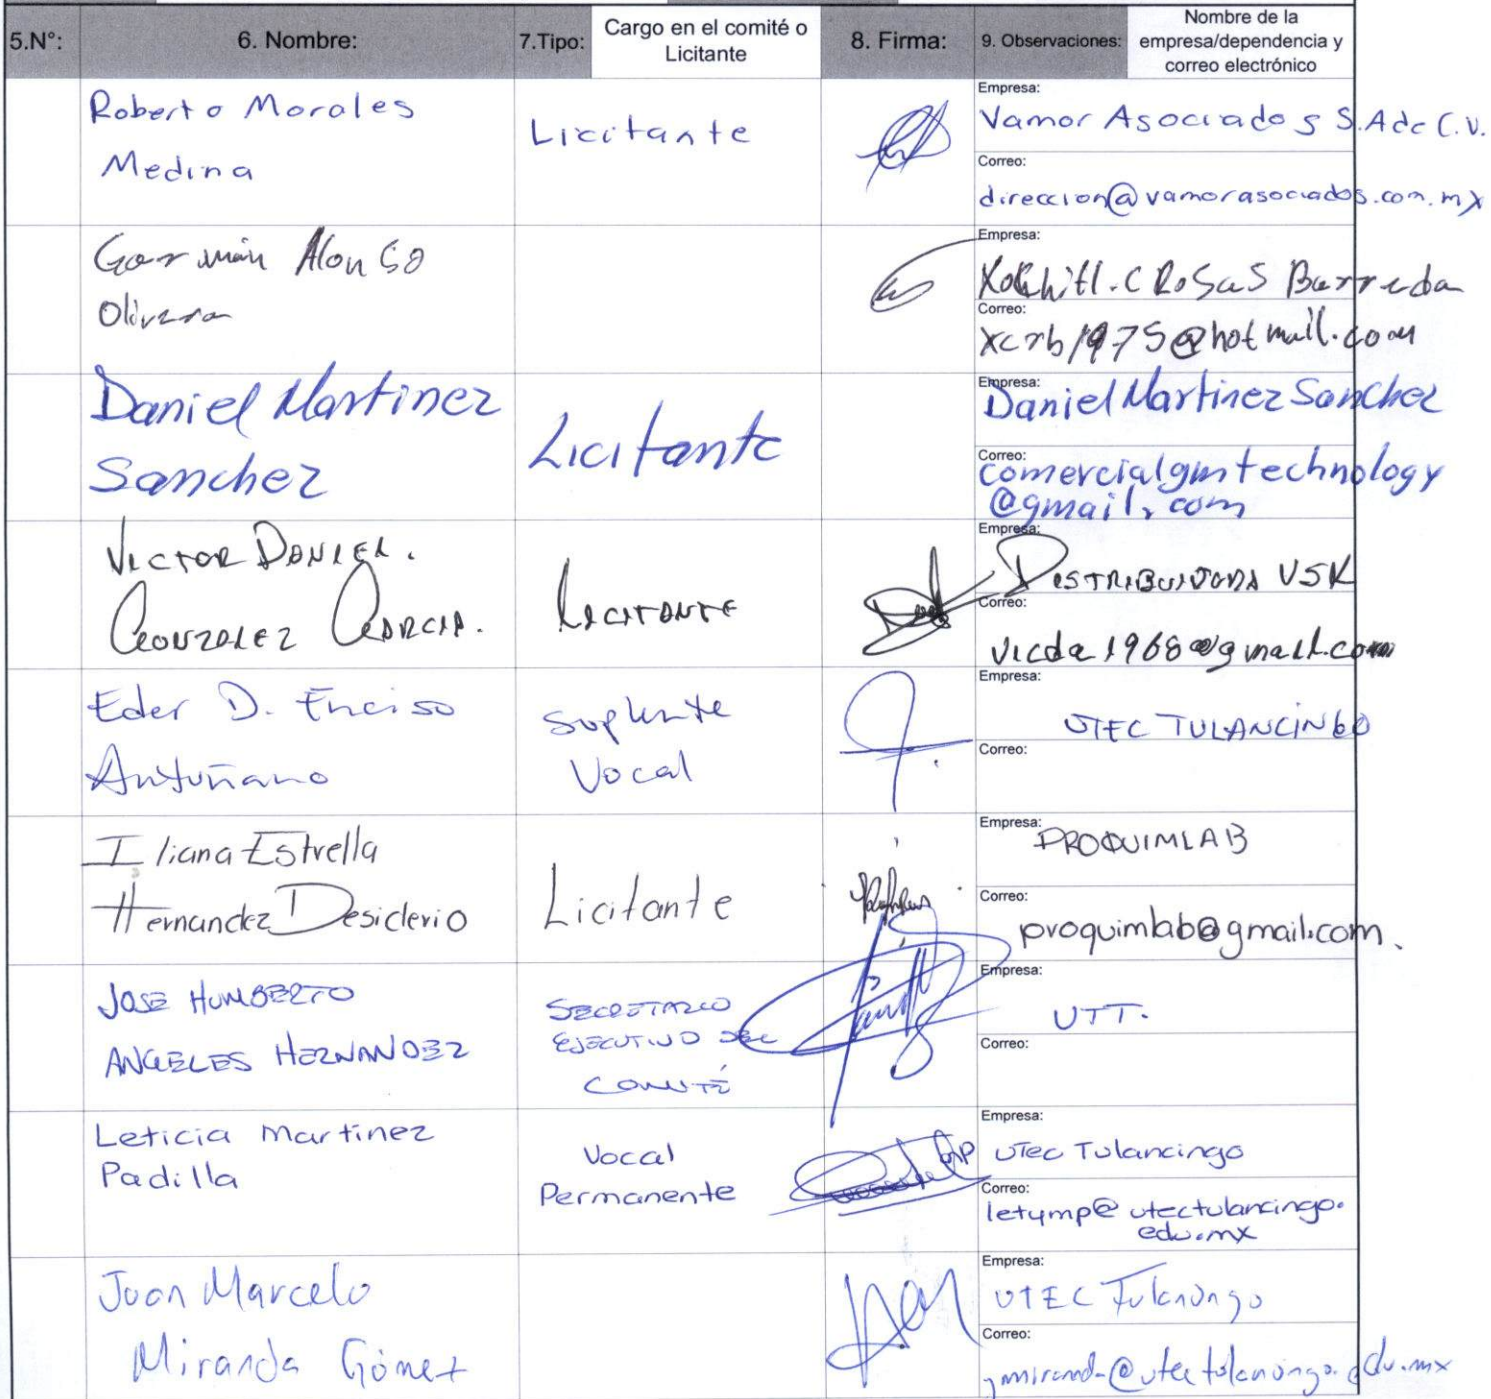 5.N°:
6. Nombre:
7.Tipo:
Cargo en el comité o
Licitante
8. Firma:
9. Observaciones:
Nombre de la
empresa/dependencia y
correo electrónico
Roberto Morales
Medina
Licitante
Empresa:
Vamor Asociados S.A de C.V.
Correo:
direccion@vamorasociados.com.mx
Germán Alonso
Olivera
Empresa:
Xochitl.C Rosas Barreda
Correo:
xcrb1975@hotmail.com
Daniel Martinez
Sanchez
Licitante
Empresa:
Daniel Martinez Sanchez
Correo:
comercialgmtechnology
@gmail.com
VICTOR DANIEL.
GONZALEZ GARCIA.
LICITANTE
Empresa:
DISTRIBUIDORA VSK
Correo:
vicda1968@gmail.com
Eder D. Enciso
Antuñano
Suplente
Vocal
Empresa:
UTEC TULANCINGO
Correo:
Iliana Estrella
Hernandez Desiderio
Licitante
Empresa:
PROQUIMLAB
Correo:
proquimlab@gmail.com.
JOSE HUMBERTO
ANGELES HERNANDEZ
SECRETARIO
EJECUTIVO DEL
COMITÉ
Empresa:
UTT.
Correo:
Leticia Martinez
Padilla
Vocal
Permanente
Empresa:
UTec Tulancingo
Correo:
letymp@utectulancingo.
edu.mx
Juan Marcelo
Miranda Gómez
Empresa:
UTEC Tulancingo
Correo:
jmiranda@utectulancingo.edu.mx